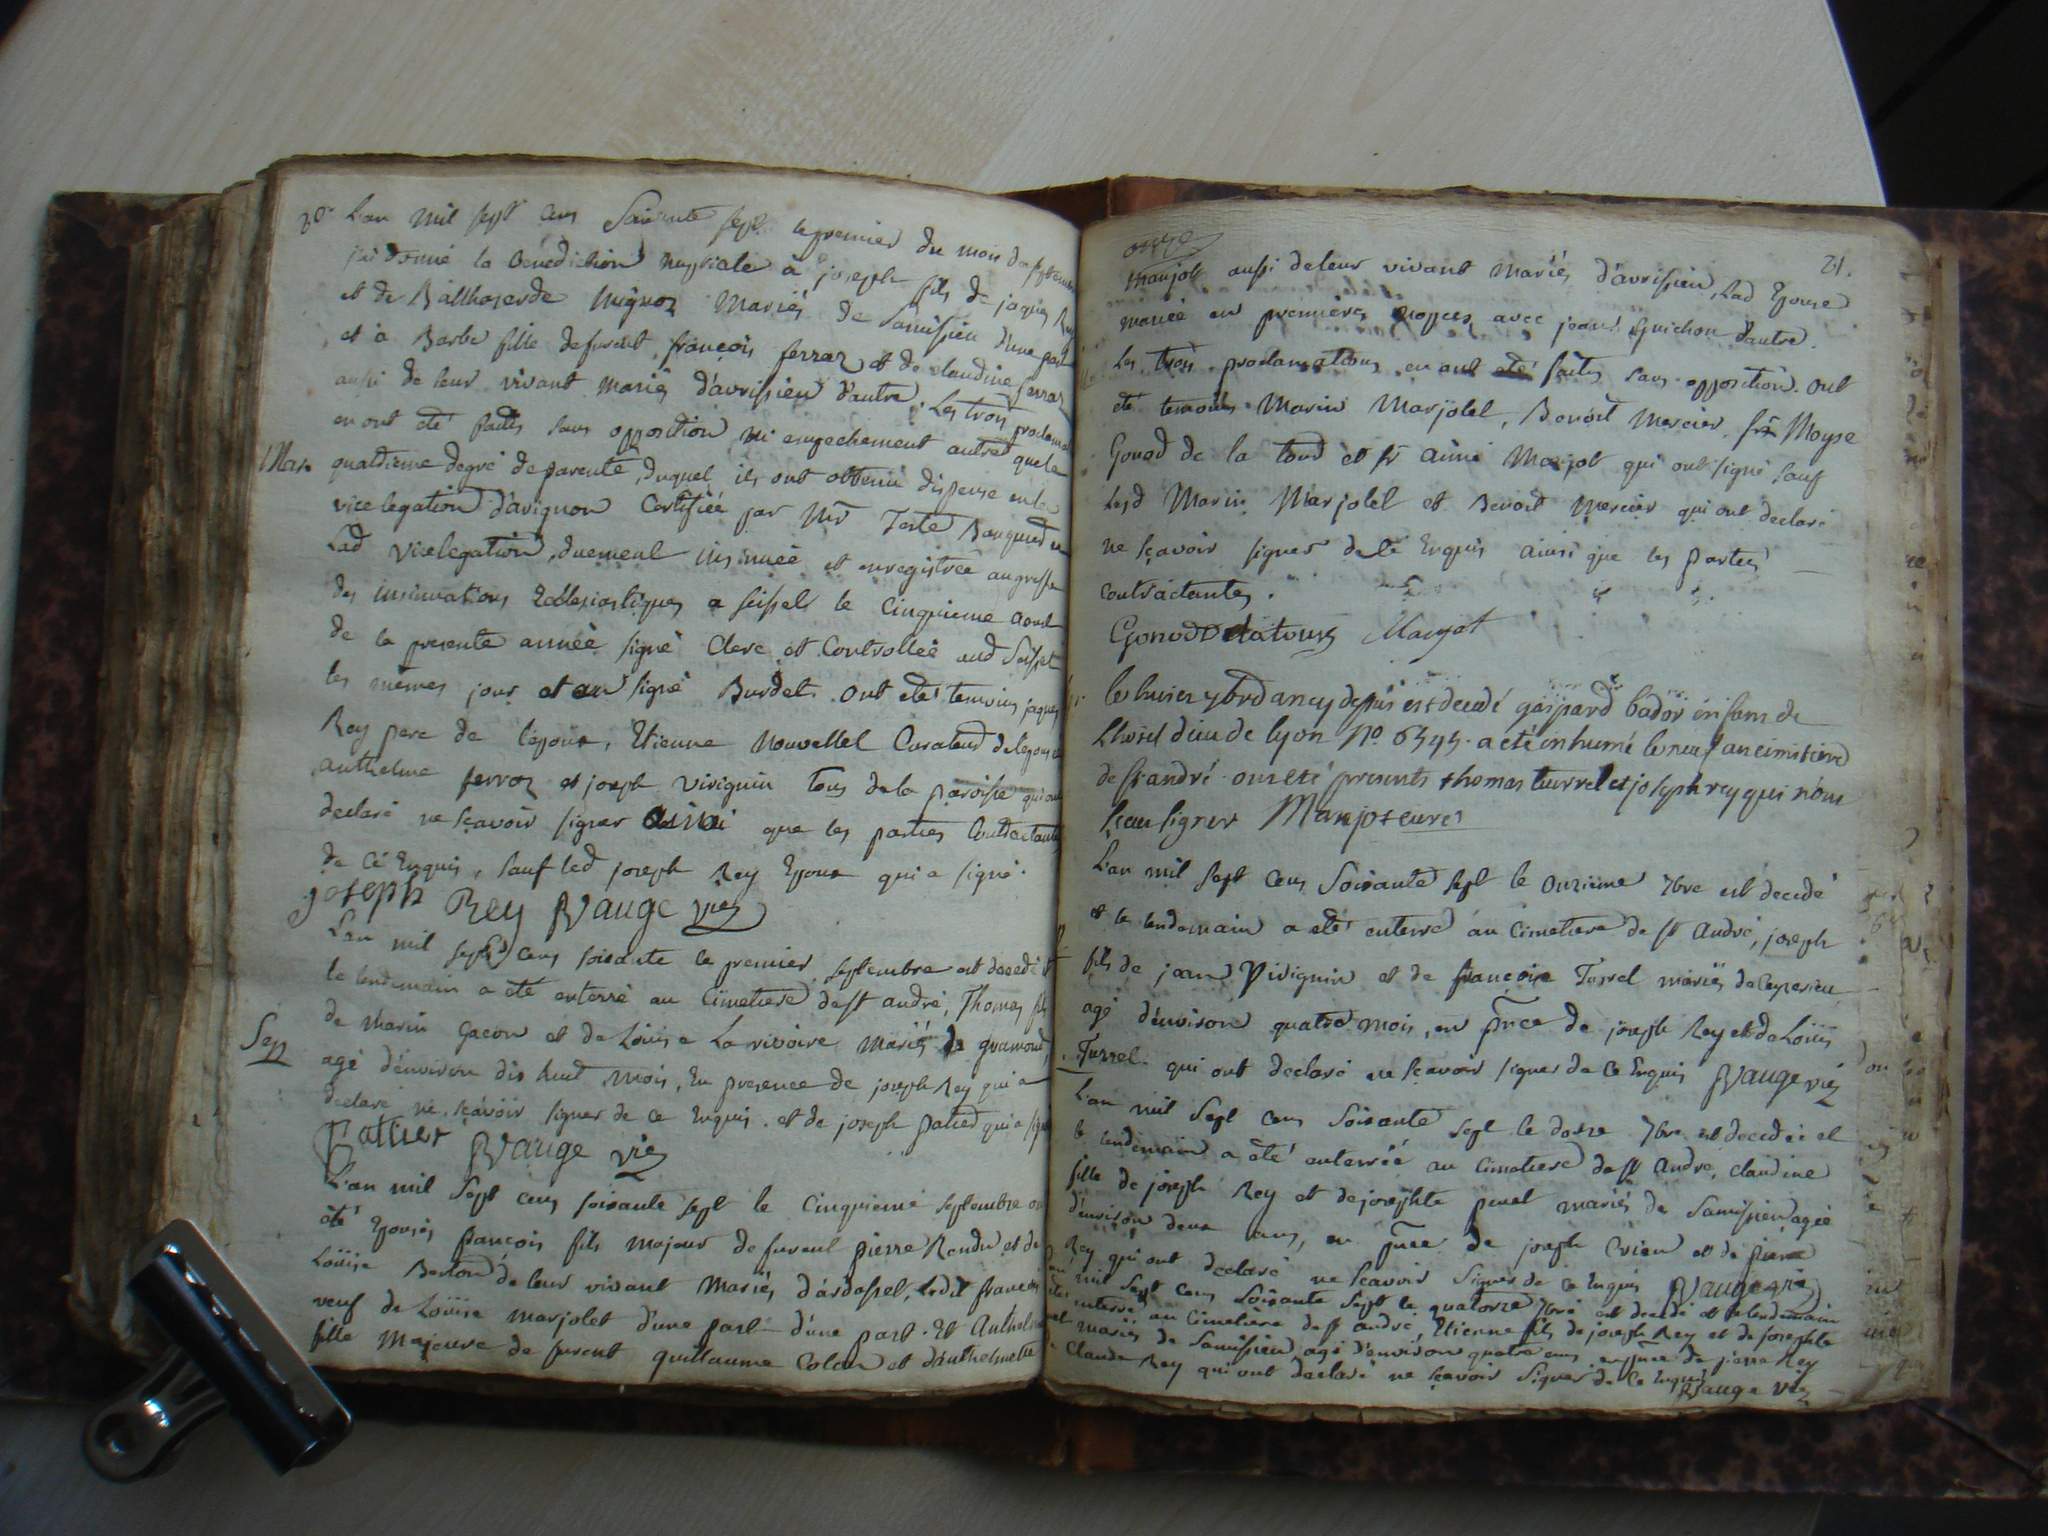 L'an mil sept cens soixante sept le premier du mois de septembre
j'ai donné la bénédiction nuptiale à joseph fils de jaques Rey
et de Balthazarde mignoz mariés de Samissieu d'une part
et à Barbe fille de furent françois ferraz et de claudine ferraz
aussi de leur vivant mariés d'avrissieu d'autre. Les trois proclama
en ont été faites sans opposition ni empechement autre que le
Mar.
quatrieme degré de parenté, duquel ils ont obtenu dispense en la
vicelegation d'avignon Certifiée par Mr Teste Banquier en
Lad vicelegation, duement insinuée et enregistrée au greffe
des insinuations Ecclesiastiques a seissel le Cinquieme aout
de la presente année signé Clerc et Controllée aud Seissel
les mêmes jour et an signé Burdet. Ont été temoins jaques
Rey pere de l'epoux, Etienne Nouvellet Curateur de lepouse
anthelme ferroz et joseph viviguin tous de la paroisse qui ont
declaré ne sçavoir signer ainsi que les parties Contractantes
de Ce Enquis, sauf led joseph Rey Epoux qui a signé.
joseph Rey Vauge vic
L'an mil sept cens soixante le premier septembre est decedé et
le lendemain a été enterré au Cimetiere de st andré, Thomas fils
de Marin Gacon et de Louise La rivoire mariés de gramond,
Sep
agé d'environ dix huit mois, En presence de joseph Rey qui a
declaré ne sçavoir signer de ce Enquis. et de joseph patied qui a signé
Pattier Vauge vic
L'an mil sept cens soixante sept le Cinquieme septembre on
été Epousés françois fils majeur de furent pierre Rendu et de
Louise Berton de leur vivant mariés d'ardossel, ledit françois
veuf de Louise marjolet d'une part d'une part. Et Anthelme
fille majeure de furent guillaume Colan et d'anthelmette
onze
21.
manjot aussi de leur vivant mariés d'avrissieu, Lad Epouse
mariée en premières noces avec jean Guichon d'autre.
Les trois proclamations en ont été faites sans opposition. Ont
été temoins Marin Marjolet, Benoit Mercier, frs Moyse
Gonod de la tour et sr aimé Marjot qui ont signé sauf
Lesd Marin Marjolet et Benoit Mercier qui ont declaré
ne sçavoir signer de Ce Enquis ainsi que les parties
contractantes.
Gonod Delatour Marjot
le huict 7bre dan cy depuis est decedé gaspard bador enfans de
Lhotel dieu de lyon No. 6545. a été inhumé le neuf au cimitiere
de st andré. ont été presents thomas turrel et joseph rey qui n'ont
sceu signer Manjot curé
L'an mil sept cens soixante sept le Onzieme 7bre est decedé
et le lendemain a été enterré au Cimetiere de st andré, joseph
fils de jean Viviguin et de françoise Turrel mariés de Ceyzerieu
agé d'environ quatre mois, en pnce de joseph Rey et de Louis
Turrel. qui ont declaré ne sçavoir signer de Ce Enquis Vauge vic
L'an mil sept cens soixante sept le doxze 7bre est decedée et
le lendemain a été enterrée au Cimetiere de st andré, claudine
fille de joseph Rey et de josephte penet mariés de Samissieu agée
d'environ deux ans, en pnce de joseph Crien et de pierre
Rey qui ont declaré ne sçavoir signer de ce Enquis Vauge vic
mil sept cens soixante sept le quatorze 7bre est decedé et le lendemain
enterré au Cimetière de st andré, Etienne fils de joseph Rey et de josephte
mariés de Samissieu agé d'environ quatre ans en pnce de pierre Rey
Claude Rey qui ont declaré ne sçavoir signer de Ce Enquis
Vauge vic